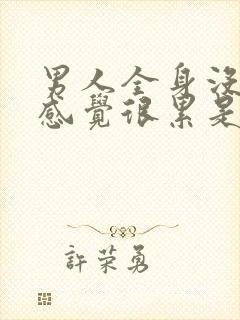 男人全身沒
感覺很累是
許荣勇